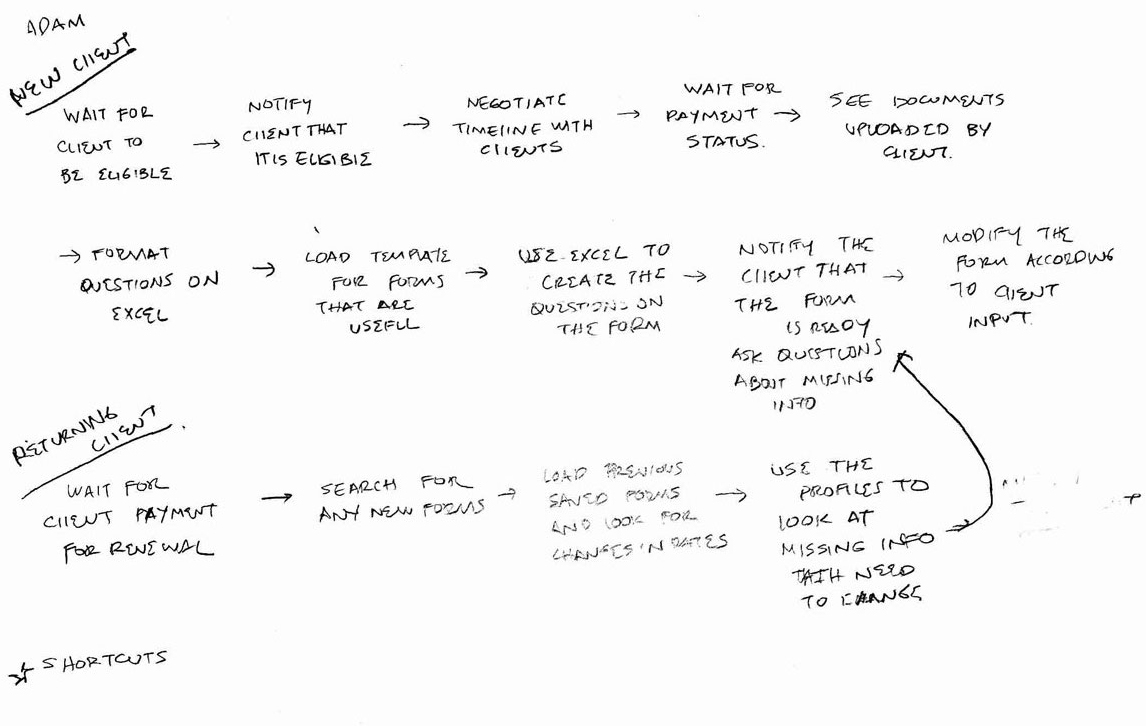 ADAM
NEW CLIENT
WAIT FOR
CLIENT TO
BE ELIGIBLE
→
NOTIFY
CLIENT THAT
IT IS ELIGIBLE
→
NEGOTIATE
TIMELINE WITH
CLIENTS
→
WAIT FOR
PAYMENT
STATUS.
→
SEE DOCUMENTS
UPLOADED BY
CLIENT.
→ FORMAT
QUESTIONS ON
EXCEL
→
LOAD TEMPLATE
FOR FORMS
THAT ARE
USEFUL
→
USE EXCEL TO
CREATE THE
QUESTIONS ON
THE FORM
→
NOTIFY THE
CLIENT THAT
THE FORM
IS READY
ASK QUESTIONS
ABOUT MISSING
INFO
→
MODIFY THE
FORM ACCORDING
TO CLIENT
INPUT.
RETURNING
CLIENT.
WAIT FOR
CLIENT PAYMENT
FOR RENEWAL
→
SEARCH FOR
ANY NEW FORMS
→
LOAD PREVIOUS
SAVED FORMS
AND LOOK FOR
CHANGES IN DATES
→
USE THE
PROFILES TO
LOOK AT
MISSING INFO
TATH NEED
TO CHANGE
SHORTCUTS